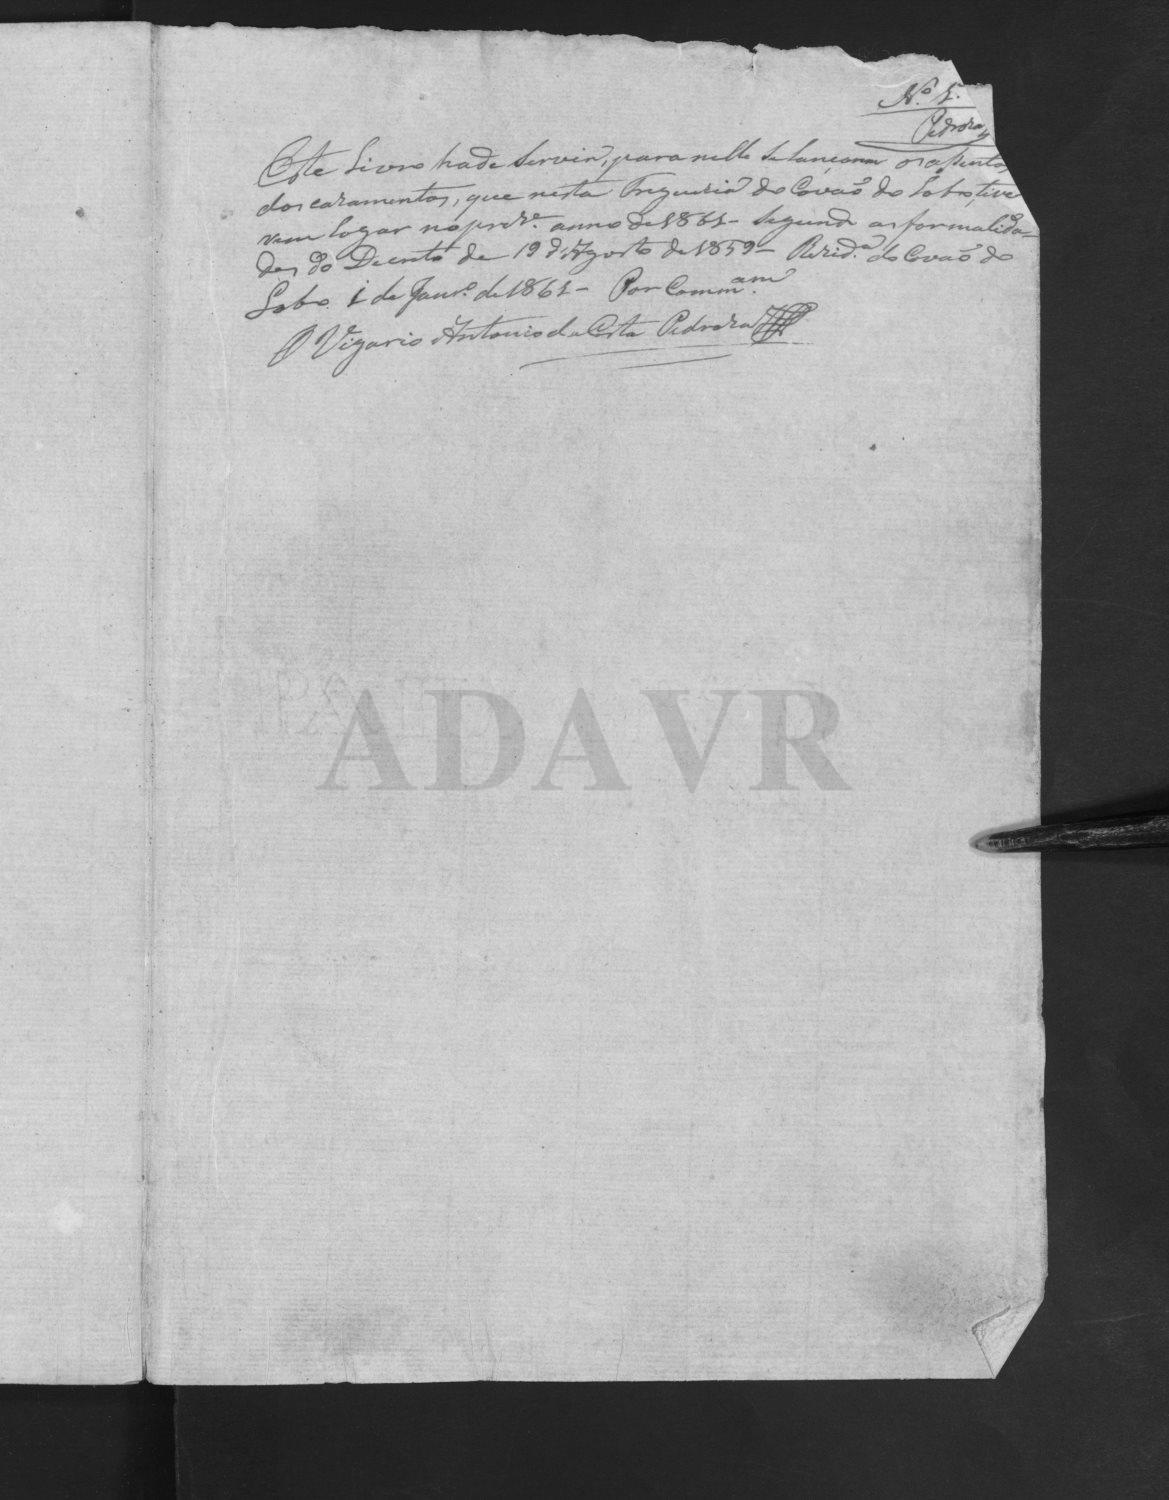 N.º 1.
Pedroza
Este Livro hade servir, para nelle se lançarem os assentos
dos cazamentos, que nesta Freguezia do Covaõ do Lobo, tive
rem logar no prez.e anno de 1861 - segundo as formalida
des do Decreto de 19 d'Agosto de 1859 - Rezid.a do Covaõ do
Lobo 1 de Janr.o de 1861 - Por Comm.am
O Vigario Antonio da Costa Pedroza
ADAVR